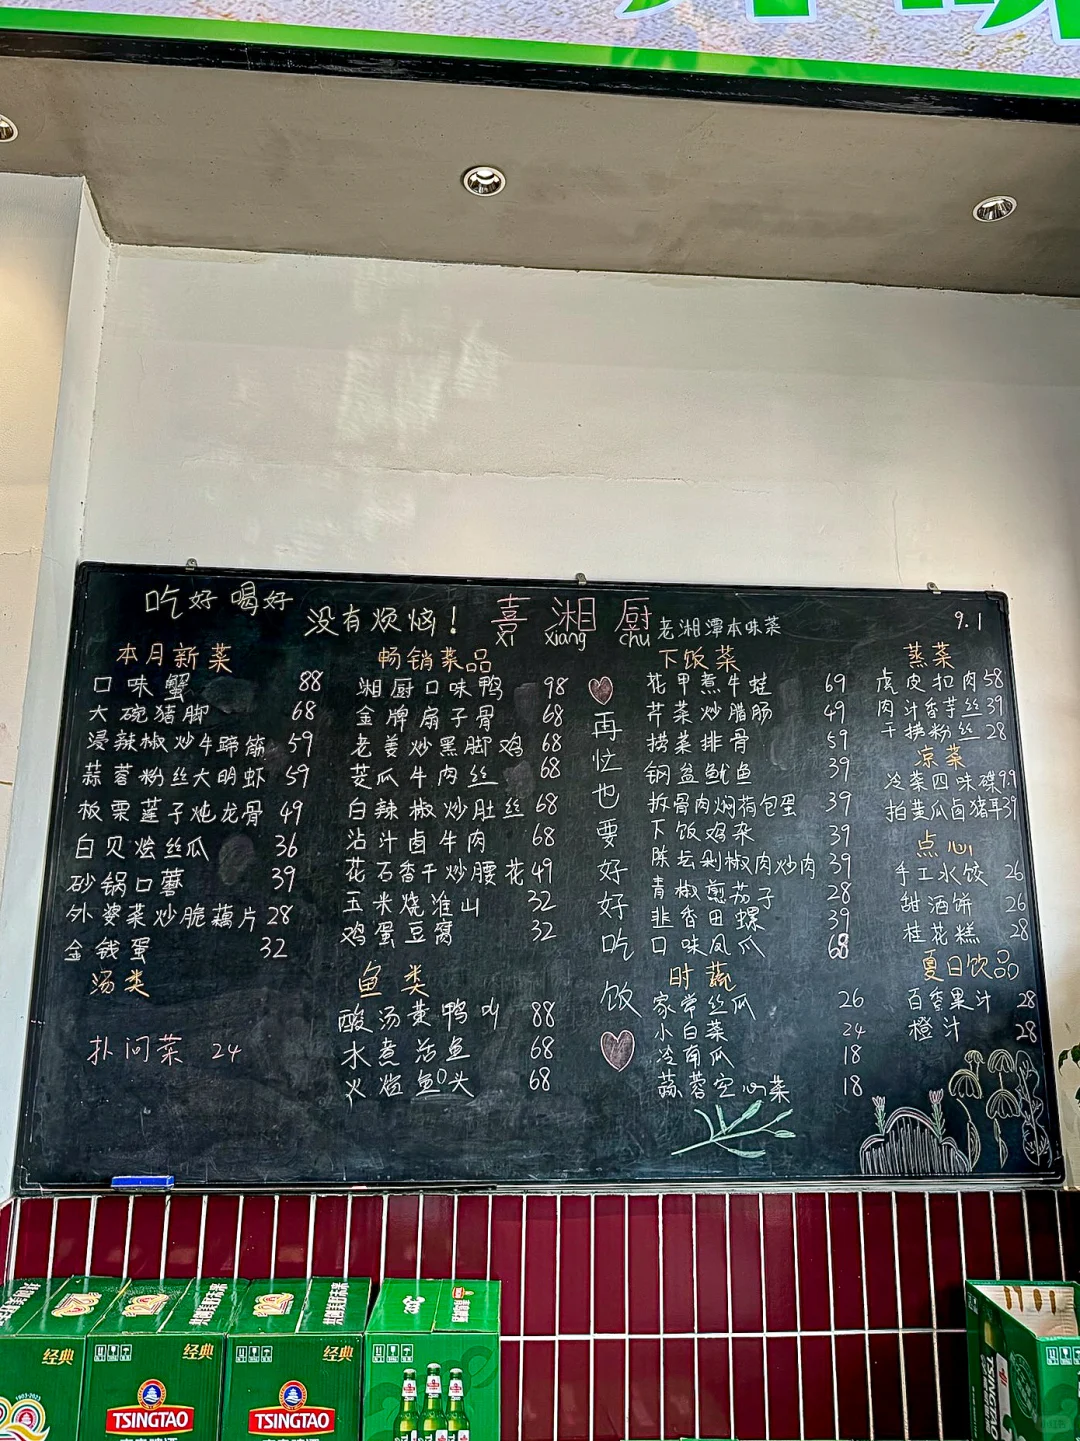 吃好喝好
没有烦恼！
喜湘厨
xi xiang chu
老湘潭本味菜
9.1
本月新菜
口味蟹 88
大碗猪脚 68
浸辣椒炒牛蹄筋 59
蒜蓉粉丝大明虾 59
板栗莲子炖龙骨 49
白贝烩丝瓜 36
砂锅口蘑 39
外婆菜炒脆藕片 28
金钱蛋 32
汤类
扑问菜 24
畅销菜品
湘厨口味鸭 98
金牌扇子骨 68
老姜炒黑脚鸡 68
茭瓜牛肉丝 68
白辣椒炒肚丝 68
沾汁卤牛肉 68
花石香干炒腰花 49
玉米烧淮山 32
鸡蛋豆腐 32
鱼类
酸汤黄鸭叫 88
水煮活鱼 68
火焰鱼头 68
再忙也要好好吃饭
下饭菜
花甲煮牛蛙 69
芹菜炒腊肠 49
捞菜排骨 59
钢盆鱿鱼 39
拆骨肉焖荷包蛋 39
下饭鸡杂 39
陈坛剁椒肉炒肉 39
青椒煎茄子 28
韭香田螺 39
口味凤爪 68
时蔬
家常丝瓜 26
小白菜 24
冷南瓜 18
蒜蓉空心菜 18
蒸菜
虎皮扣肉 58
肉汁香芋丝 39
干捞粉丝 28
凉菜
冷菜四味碟 99
拍黄瓜卤猪耳 39
点心
手工水饺 26
甜酒饼 26
桂花糕 28
夏日饮品
百香果汁 28
橙汁 28
经典
经典
经典
TSINGTAO
TSINGTAO
TSINGTAO